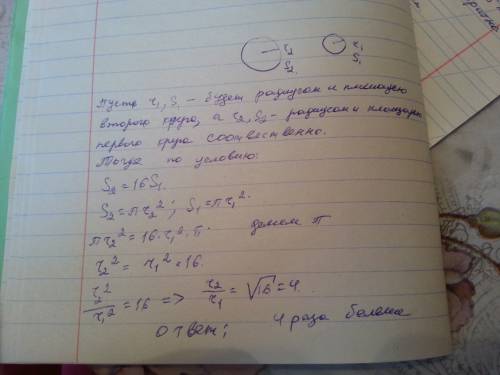 r₂ r₁
S₂ S₁
Пусть r₁, S₁ – будет радиусом и площадью
второго круга, а r₂, S₂ – радиусом и площадью
первого круга соотвественно.
Тогда по условию:
S₂ = 16S₁.
S₂ = πr₂²; S₁ = πr₁².
πr₂² = 16·r₁²·π. делем π
r₂² = r₁²·16.
r₂²/r₁² = 16 => r₂/r₁ = √16 = 4.
ответ: 4 раза больше